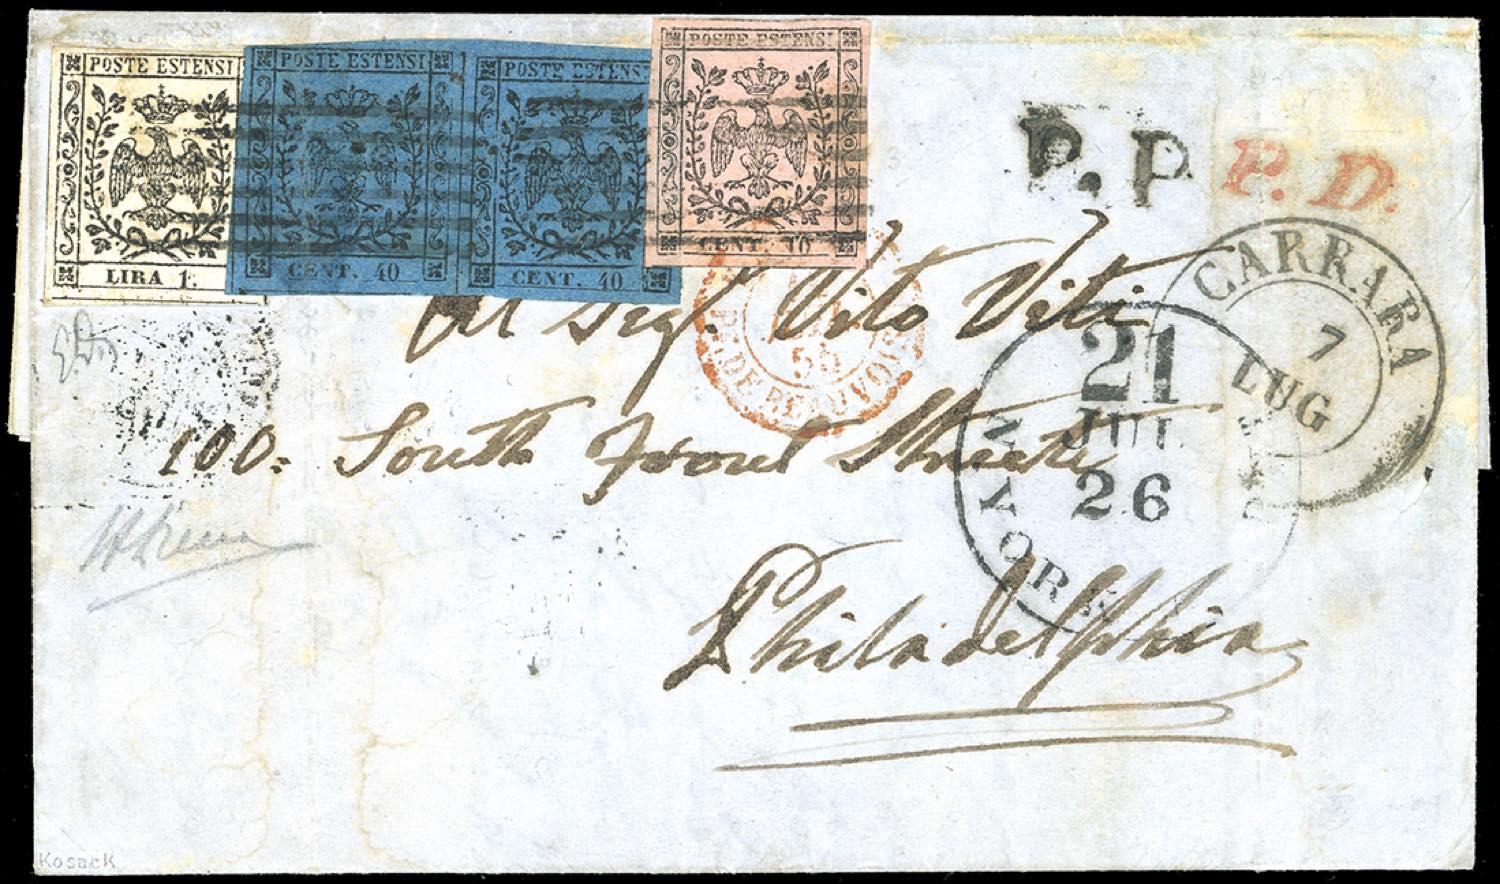 POSTE ESTENSI
LIRA 1.
POSTE ESTENSI
CENT. 40
POSTE ESTENSI
CENT. 40
POSTE ESTENSI
CENT. 10
P.P
P.D.
CARRARA
7
LUG
Al Sigr. Vito Viti
55
PT DE BEAUVOIS
21
JUL
26
YORK
100. South Front Streete
Philadelphia
Kosack